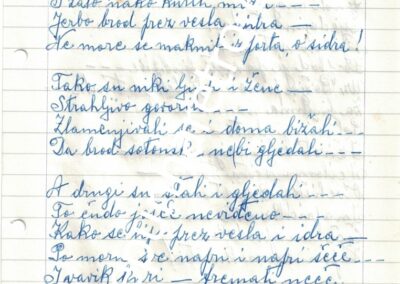 I zašto nako kurin,
Jerbo brod prez vesla i idra –
Ne more se maknit iz porta, o sidra!
Tako su niki ljudi i žene –
Strahljivo govorin – – –
Zlamenjivali se i doma bižali – – –
Da brod sotonski nebi gljedali – – –
A drugi su stali i gljedali – – –
To čudo još nevidjeno – – –
Kako se prez vesla i idra –
Po moru sve napri i napri šeće – – –
I vavik – neće –